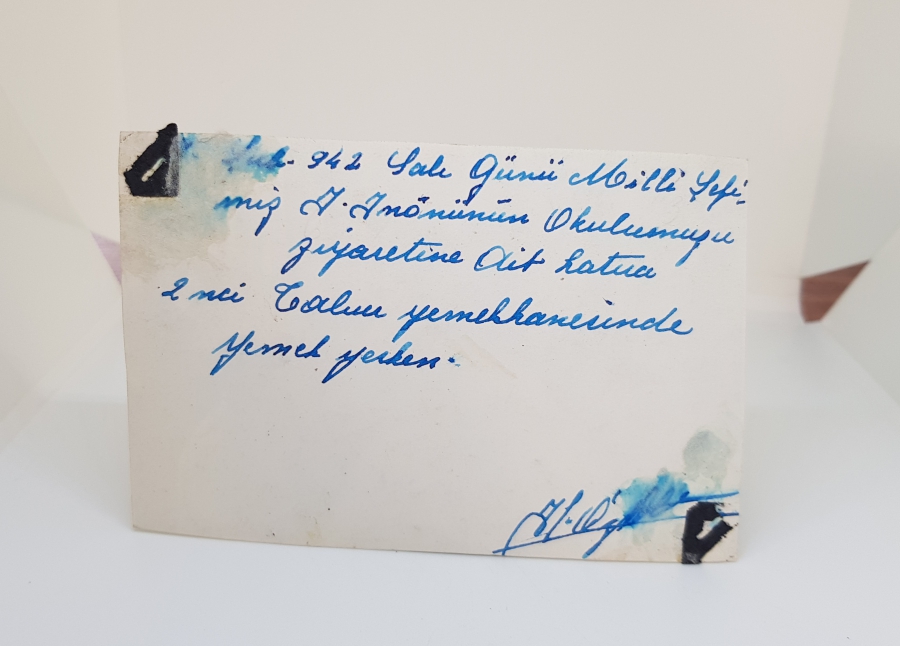 942 Salı Günü Milli Şefi-
miz İ. İnönünün Okulumuzu
ziyaretine Ait hatıra
2 nci Tabur yemekhanesinde
Yemek yerken.